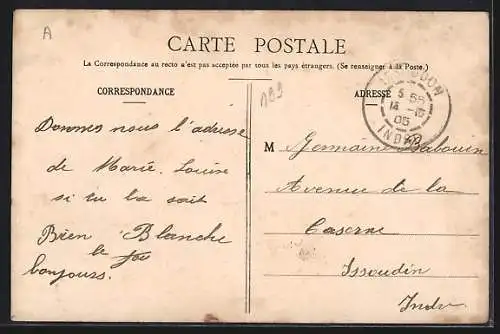 A
CARTE POSTALE
La Correspondance au recto n'est pas acceptée par tous les pays étrangers. (Se renseigner à la Poste.)
CORRESPONDANCE
ADRESSE
189
ISSOUDUN
5 55
14 - 10
05
INDRE
Donnes nous l'adresse
de Marie. Louise
si tu la sait
Bien Blanche
le
bonjours.
M Germaine Babouin
Avenue de la
Caserne
Issoudin
Indre